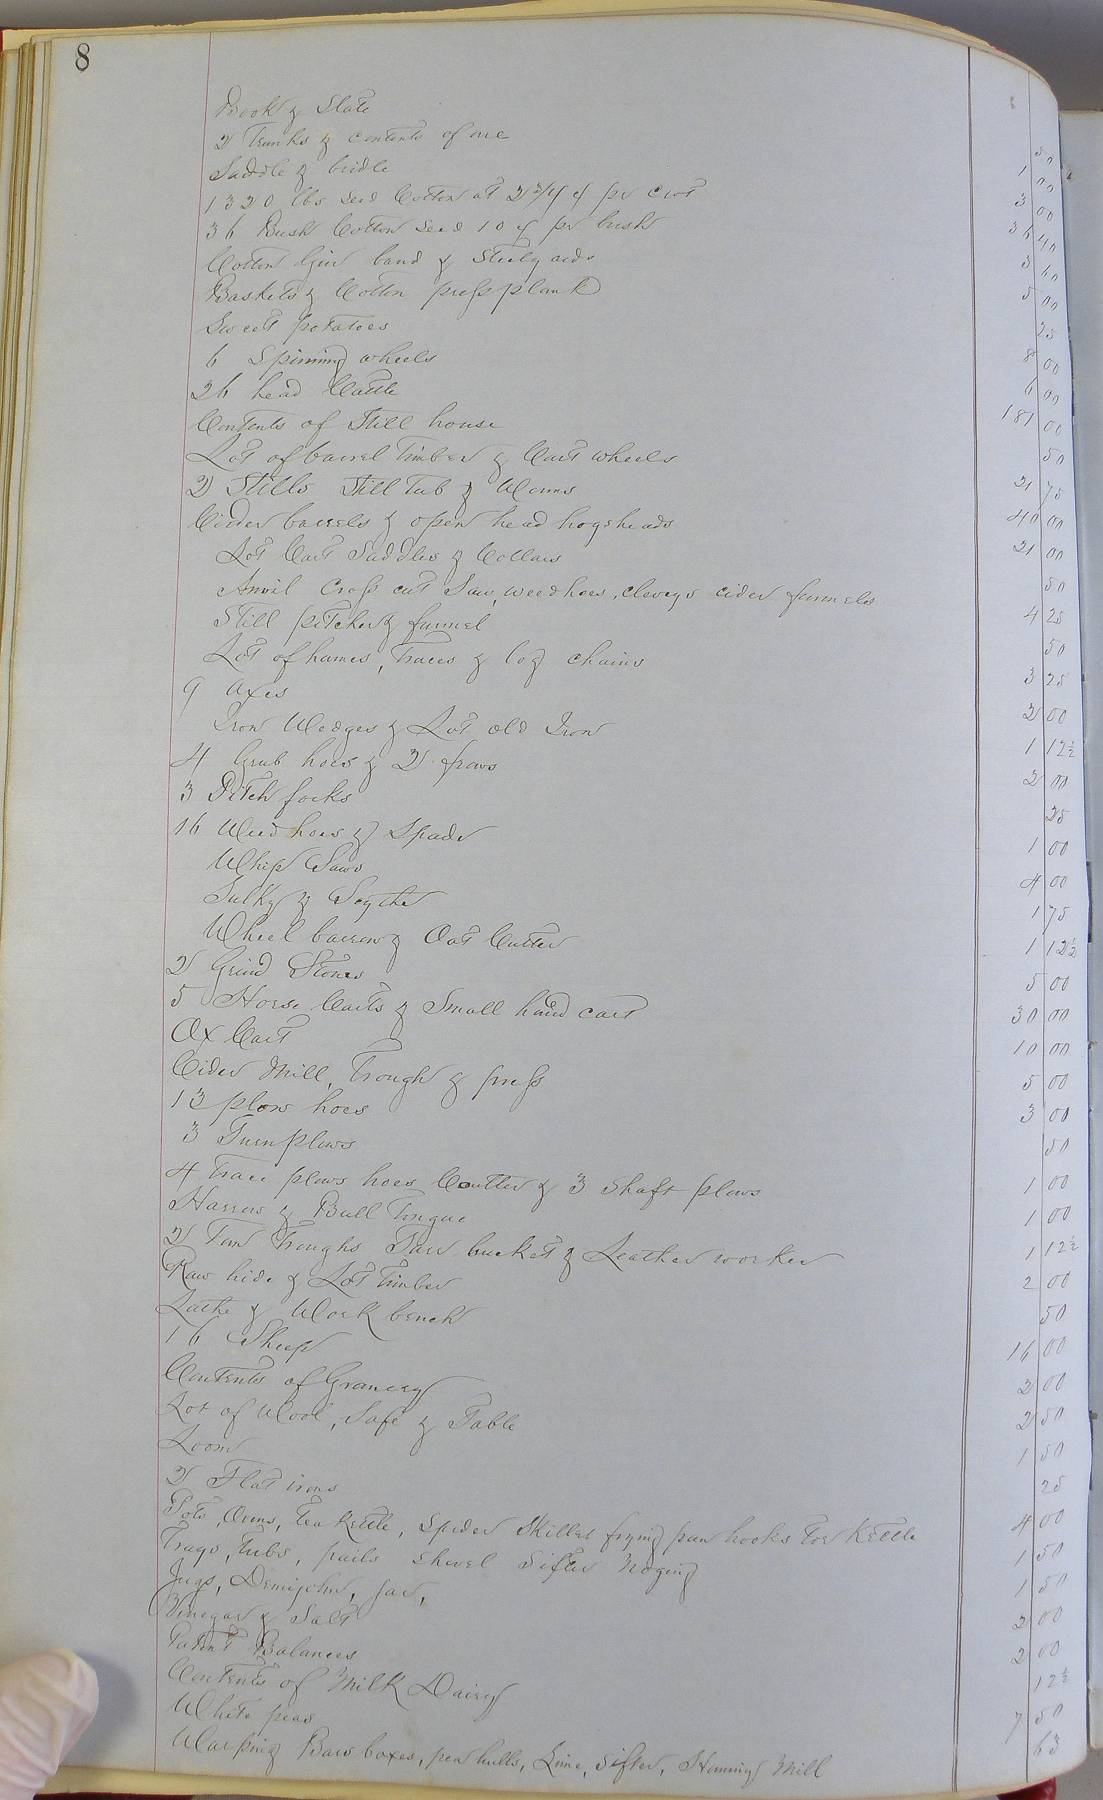 8
Book & Slate 50
2 Trunks & contents of one 1 00
Saddle & bridle 3 00
1320 lbs Seed Cotton at 2 3/4 ¢ pr cwt 36 40
36 Bush Cotton Seed 10 ¢ pr bush 3 60
Cotton Gin band & Steelyards 5 00
Baskets & Cotton press plank 25
Sweet potatoes 8 00
6 Spinning wheels 6 00
26 head Cattle 181 00
Contents of Still house 50
Lot of barrel timber & Cart wheels 21 75
2 Stills Still Tub & Worms 40 00
Cider barrels & open head hogsheads 21 00
Lot Cart Saddles & Collars 50
Anvil Cross cut Saw, weedhoes, clevys cider funnels 4 25
Still pitcher & funnel 50
Lot of hames, Traces & log chains 3 25
9 Axes 2 00
Iron Wedges & Lot old Iron 1 12½
4 Grub hoes & 2 frows 2 00
3 Pitch forks 25
16 Weed hoes & Spade 1 00
Whip Saws 4 00
Sulky & Scythe 1 75
Wheel barrow & Oat Cutter 1 12½
2 Grind Stones 5 00
5 Horse Carts & Small hand cart 30 00
Ox Cart 10 00
Cider Mill, Trough & press 5 00
13 plow hoes 3 00
3 Turn plows 50
4 Trace plows hoes Coulter & 3 Shaft plows 1 00
Harrow & Bull Tongue 1 00
2 Tan Troughs Tar bucket & Leather worker 1 12½
Raw hide & Lot Timber 2 00
Lathe & Work bench 50
16 Sheep 16 00
Contents of Granery 2 00
Lot of Wool, Safe & Table 2 50
Loom 1 50
2 Flat irons 25
Pots, Ovens, Tea Kettle, Spider Skillet frying pan hooks Toe Kettle 4 00
Trays, Tubs, pails shovel Sifter 1 50
Jugs, Demijohn, Jar, 1 50
Vinegar & Salt 2 00
Patent Balances 2 00
Contents of Milk Dairy 12½
White peas 7 50
Warping Bars boxes, pea hulls, Lime, Sifter, Hominy Mill 63